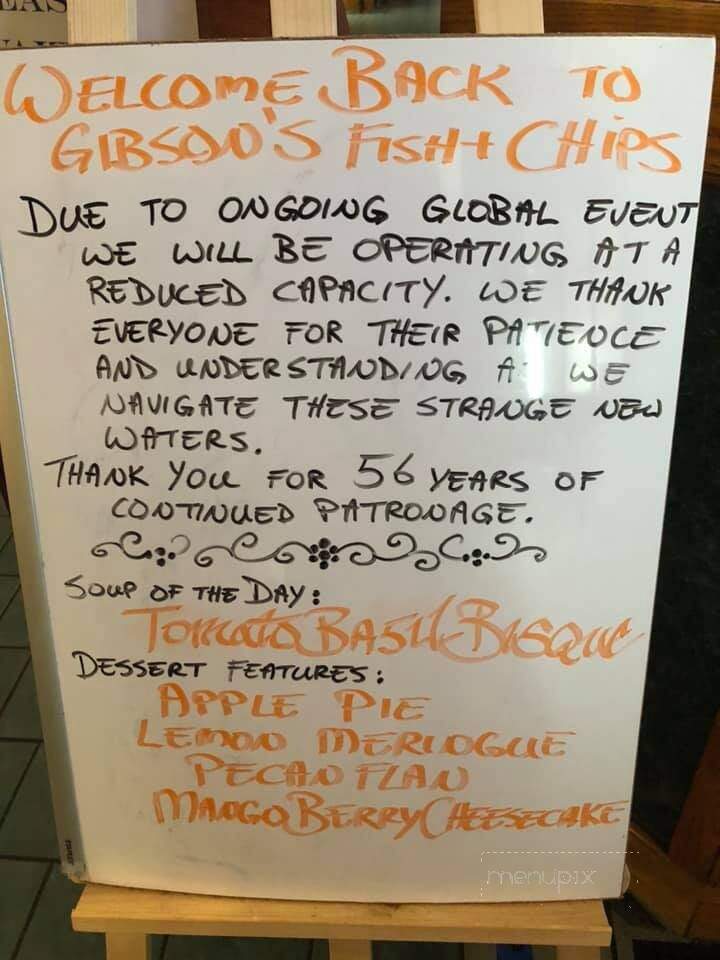 WELCOME BACK TO
GIBSON'S FISH + CHIPS
DUE TO ONGOING GLOBAL EVENT
WE WILL BE OPERATING AT A
REDUCED CAPACITY. WE THANK
EVERYONE FOR THEIR PATIENCE
AND UNDERSTANDING A WE
NAVIGATE THESE STRANGE NEW
WATERS.
THANK YOU FOR 56 YEARS OF
CONTINUED PATRONAGE.
SOUP OF THE DAY:
TOMATO BASIL BISQUE
DESSERT FEATURES:
APPLE PIE
LEMON MERINGUE
PECAN FLAN
MANGO BERRY CHEESECAKE
menupix